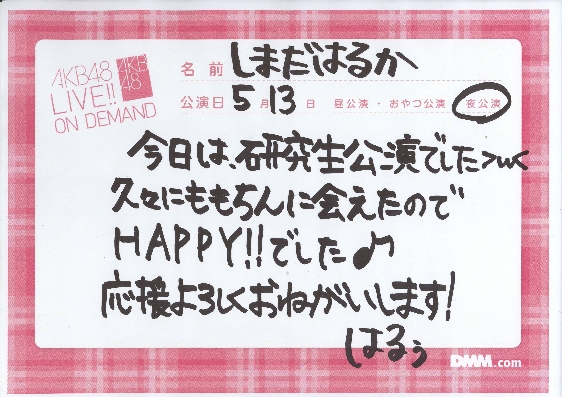 AKB48
LIVE!!
ON DEMAND
AKB
48
名前 しまだはるか
公演日 5月13日 昼公演・おやつ公演 夜公演
今日は、研究生公演でした>ω<
久々にももちんに会えたので
HAPPY!!でした♪
応援よろしくおねがいします!
はるぅ
DMM.com